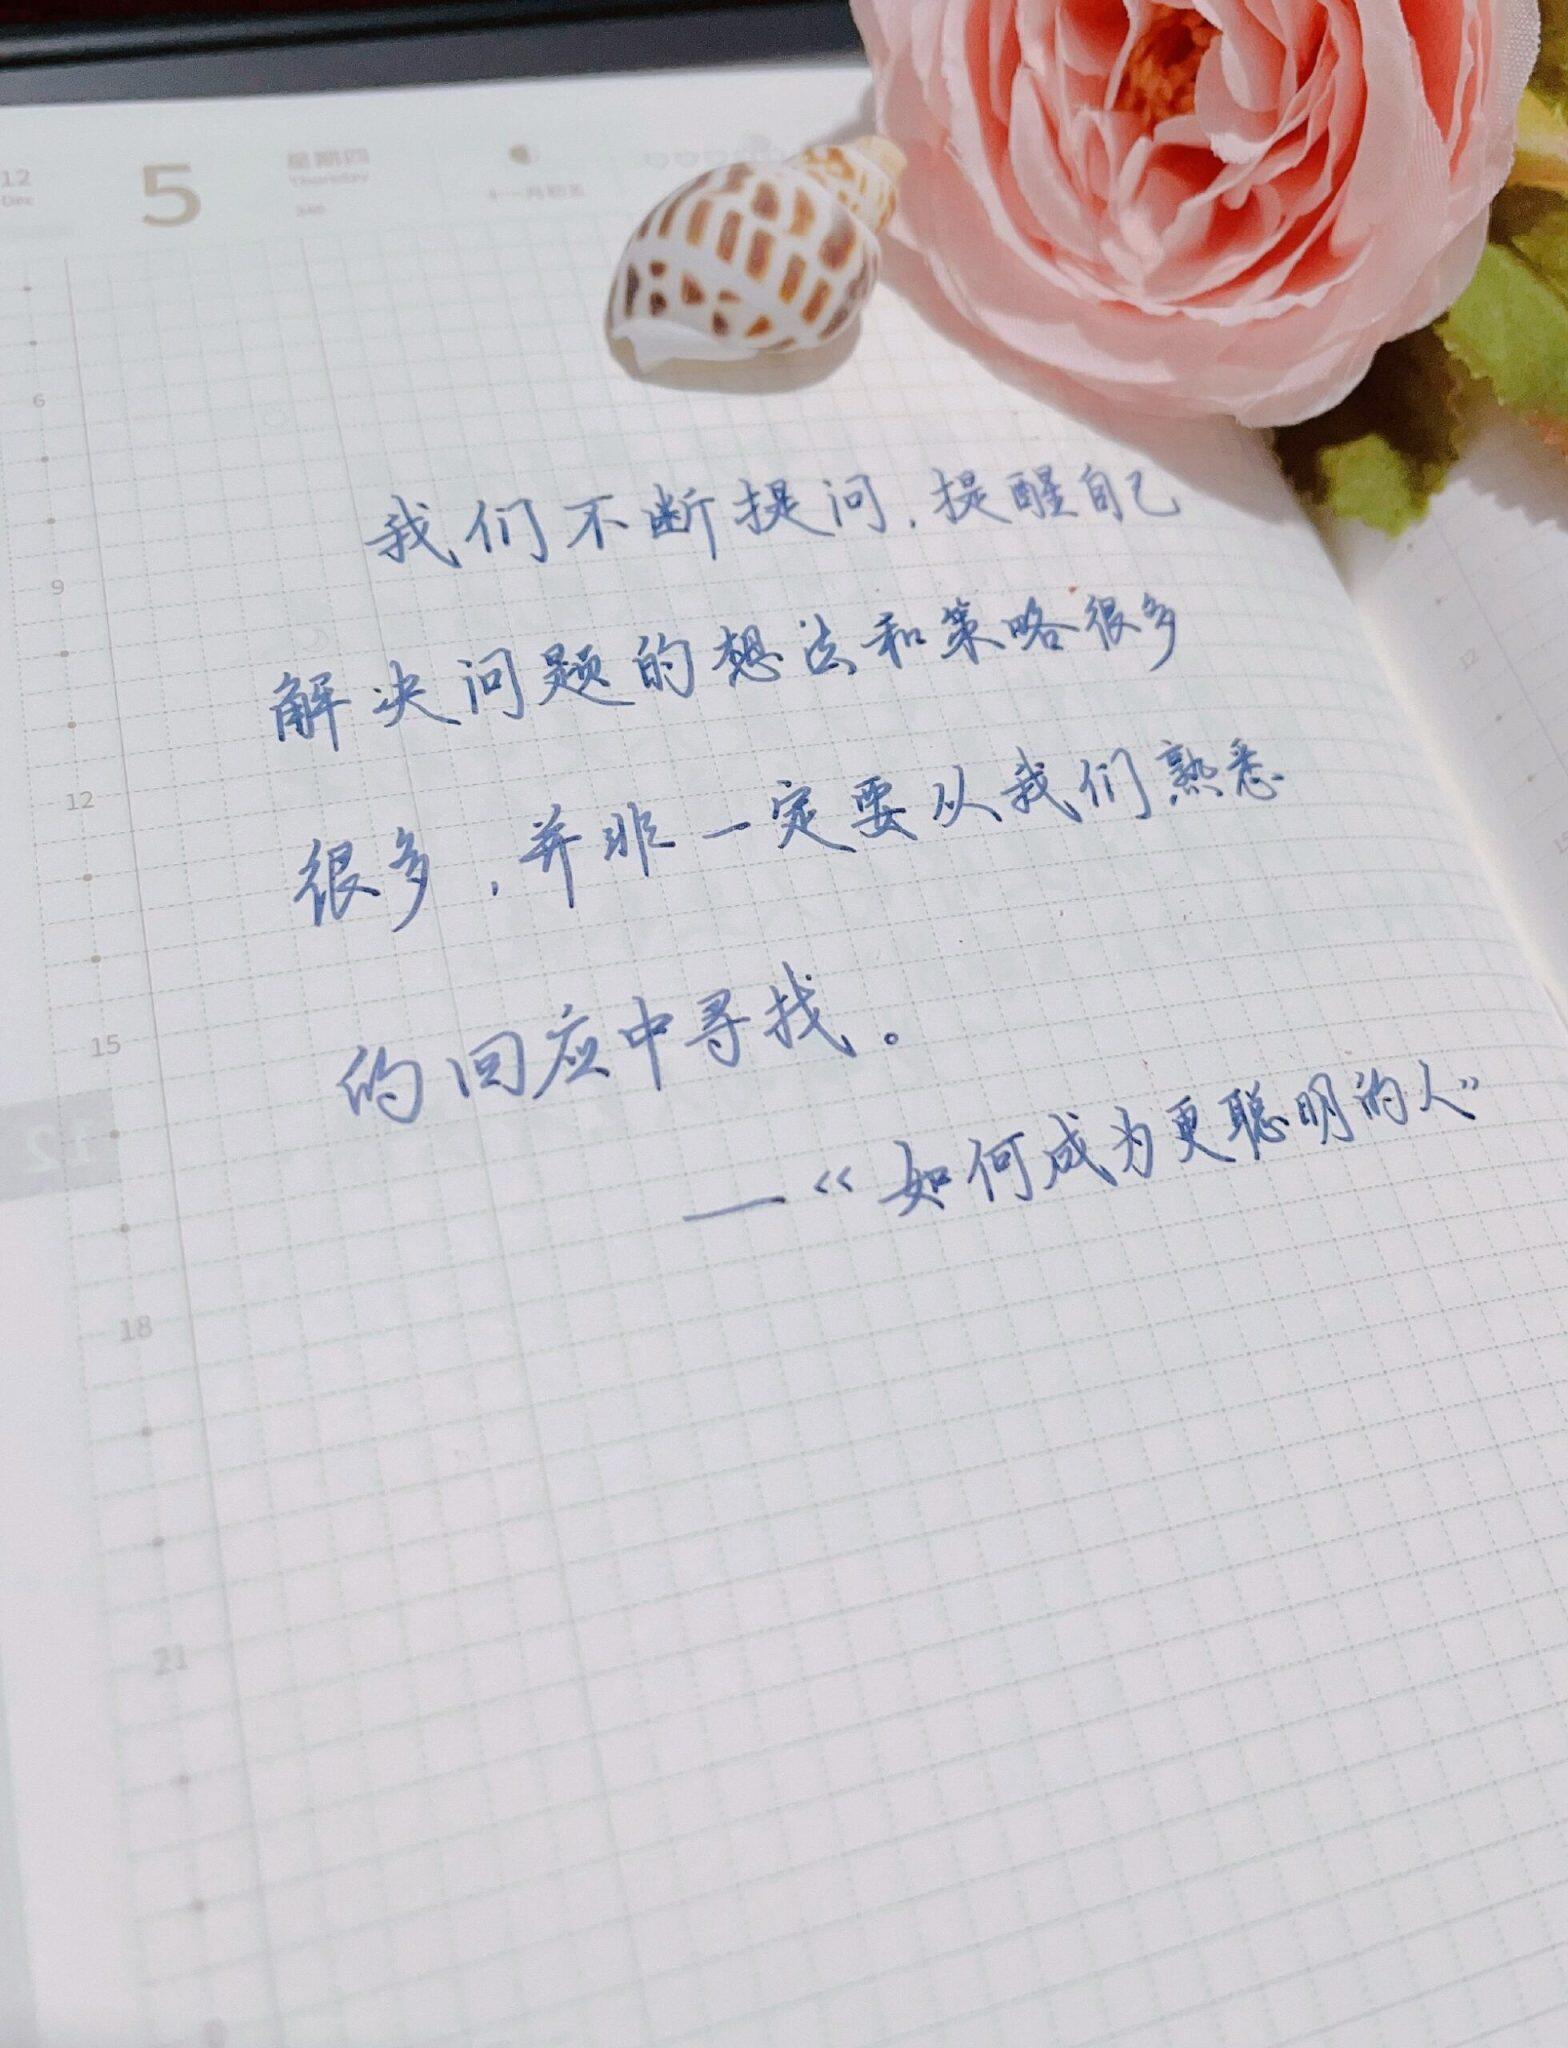 12
Dec
5
星期四
Thursday
340
十一月初五
6
9
12
15
12
18
21
我们不断提问，提醒自己
解决问题的想法和策略很多
很多，并非一定要从我们熟悉
的回应中寻找。
—《如何成为更聪明的人》
12
15